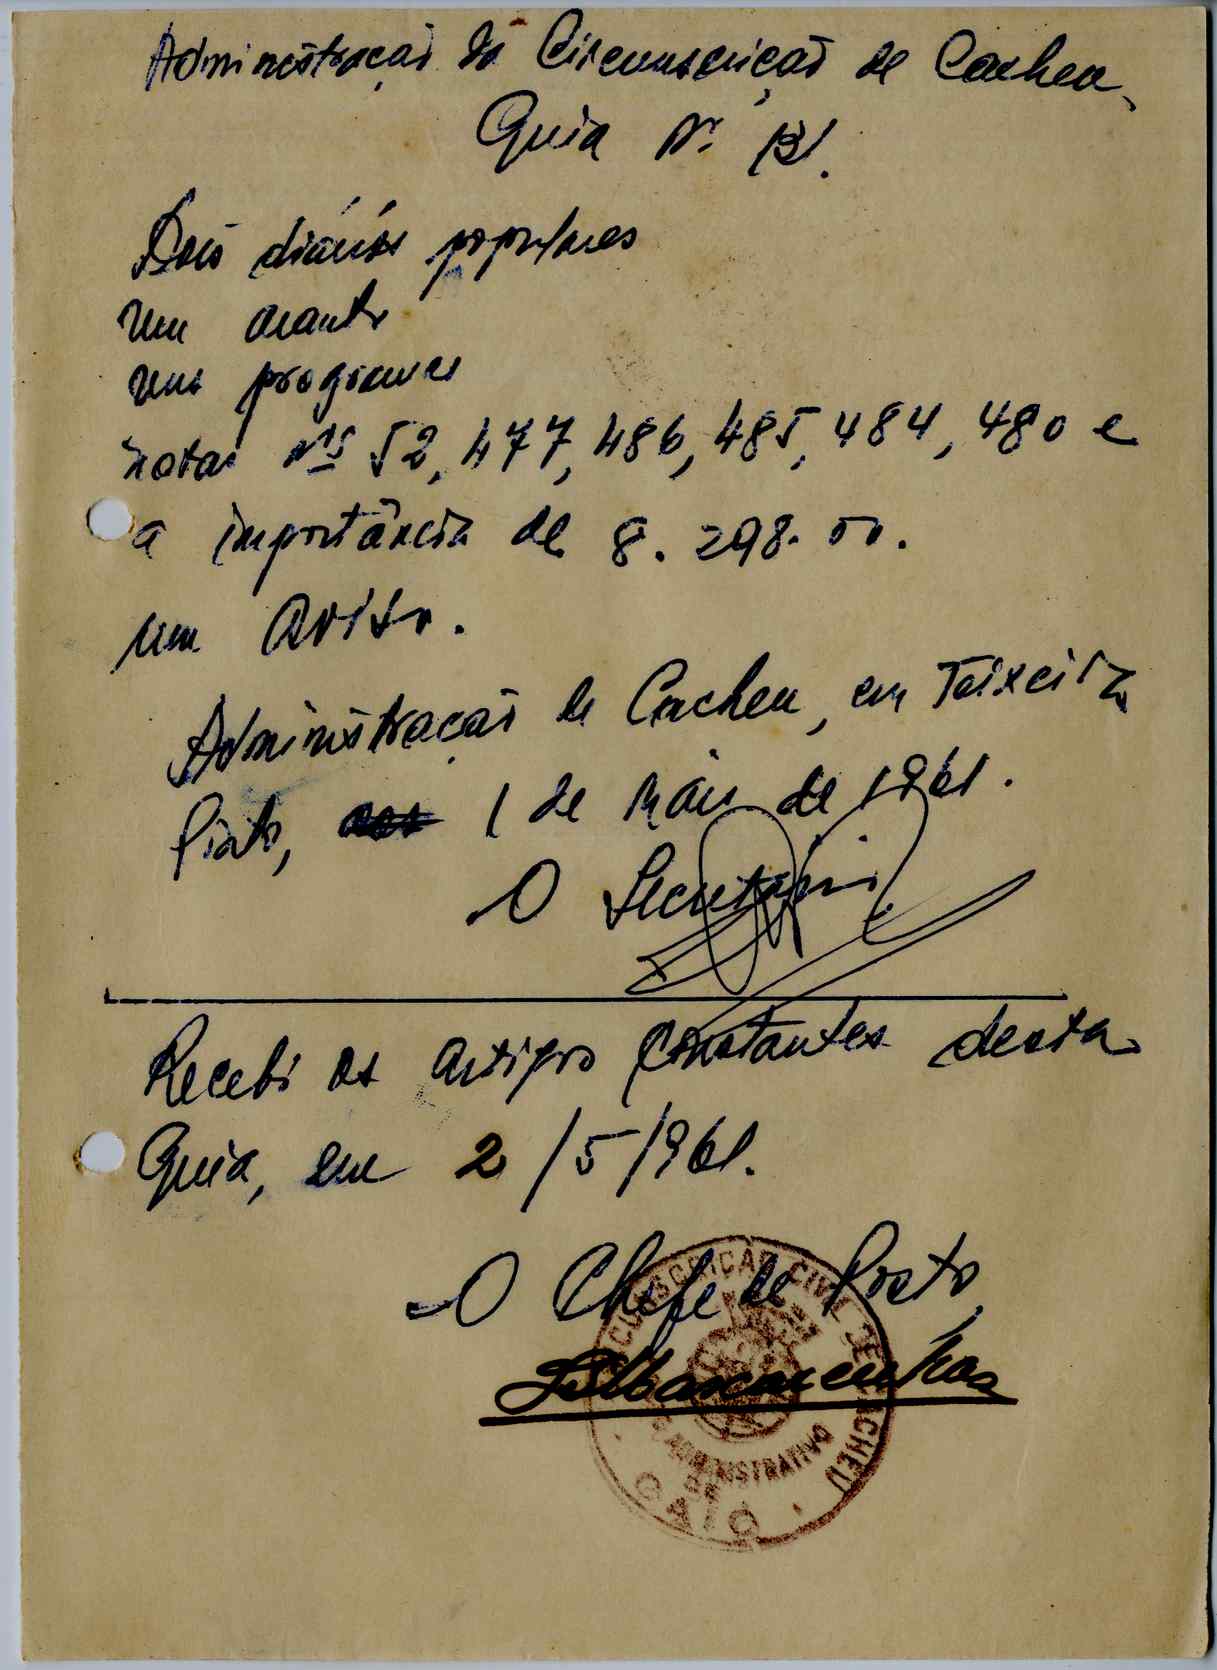 Administração da Circunscrição de Cacheu,
Guia Nº 131.
Dois diários populares
um
um programa
notas Nºs 52, 477, 486, 485, 484, 480 e
a importância de 8.298.00.
um aviso.
Administração de Cacheu, em Teixeira
Pinto, 1 de Maio de 1961.
O Secretário
Recebi os artigos constantes desta
Guia, em 2/5/1961.
O Chefe de Posto,
CIRCUNSCRIÇÃO CIVIL DE CACHEU
ADMINISTRATIVO
DE